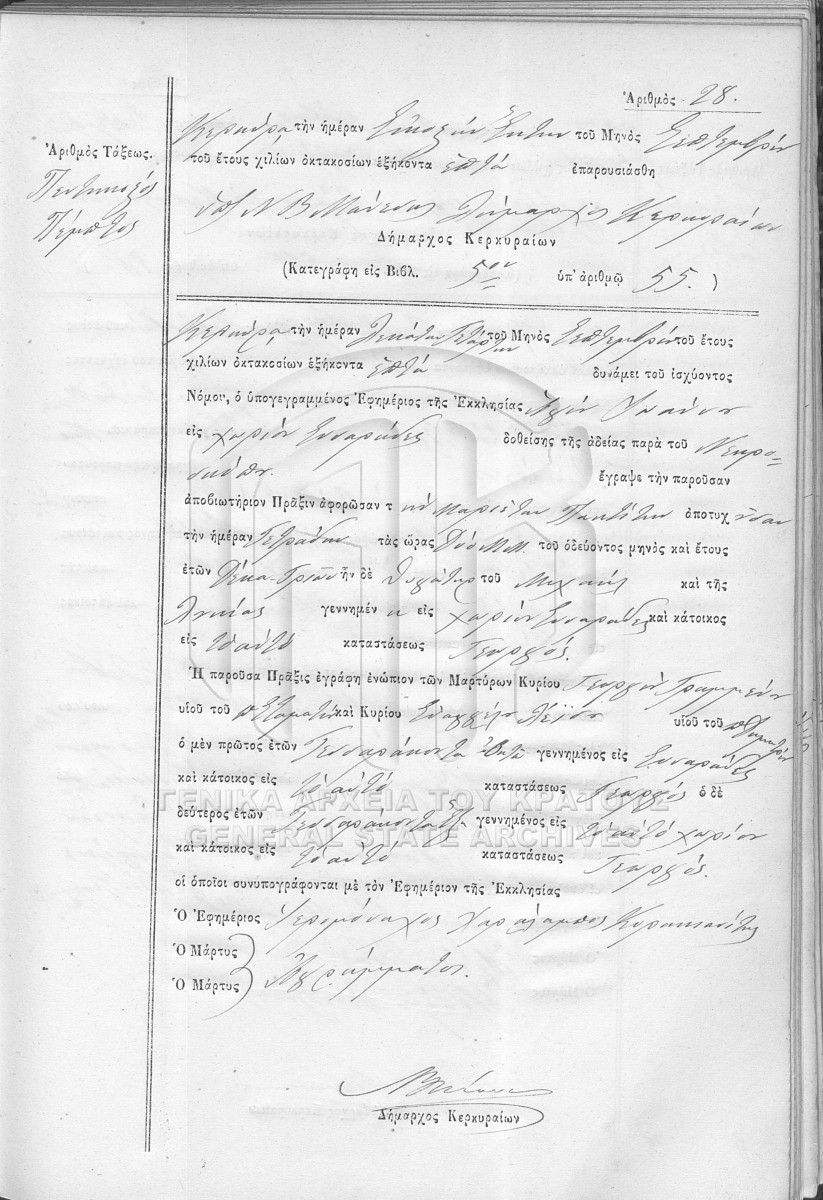 Ἀριθμὸς 28.
Ἀριθμὸς Τάξεως.
Πεντηκοστὸς
Πέμπτος
Κερκύρα τὴν ἡμέραν Εἰκοστὴν Ἕκτην τοῦ Μηνὸς Σεπτεμβρίου
τοῦ ἔτους χιλίων ὀκτακοσίων ἑξήκοντα ἑπτὰ ἐπαρουσιάσθη
Δήμαρχος Κερκυραίων
Δήμαρχος Κερκυραίων
(Κατεγράφη εἰς Βιβλ. 5ον ὑπ' ἀριθμῷ 55.)
Κερκύρα, τὴν ἡμέραν Δεκάτην Τετάρτην τοῦ Μηνὸς Σεπτεμβρίου τοῦ ἔτους
χιλίων ὀκτακοσίων ἑξήκοντα ἑπτὰ δυνάμει τοῦ ἰσχύοντος
Νόμου, ὁ ὑπογεγραμμένος Ἐφημέριος τῆς Ἐκκλησίας Ἁγίου
εἰς χωρίον Συναράδες δοθείσης τῆς ἀδείας παρὰ τοῦ Νεκρο-
σκόπου. ἔγραψε τὴν παροῦσαν
ἀποβιωτήριον Πρᾶξιν ἀφορῶσαν τ ἀποτυχ οῦσαν
τὴν ἡμέραν Τετράδην τὰς ὥρας Δύο Μ.Μ. τοῦ ὁδεύοντος μηνὸς καὶ ἔτους
ἐτῶν Δέκα-Τριῶν ἦν δὲ θυγάτηρ τοῦ Μιχαὴλ καὶ τῆς
γεννημέν η εἰς χωρίον Συναράδες καὶ κάτοικος
εἰς τὸ αὐτὸ καταστάσεως Γεωργός.
Ἡ παροῦσα Πρᾶξις ἐγράφη ἐνώπιον τῶν Μαρτύρων Κυρίου Γεωργίου Γραμμένου
υἱοῦ τοῦ π Σταματίου καὶ Κυρίου υἱοῦ τοῦ π Σταματίου
ὁ μὲν πρῶτος ἐτῶν Τεσσαράκοντα Ὀκτὼ γεννημένος εἰς Συναράδες
καὶ κάτοικος εἰς τὸ αὐτὸ καταστάσεως Γεωργὸς ὁ δὲ
δεύτερος ἐτῶν Τεσσαράκοντα Ἓξ γεννημένος εἰς τὸ αὐτὸ χωρίον
καὶ κάτοικος εἰς τὸ αὐτὸ καταστάσεως Γεωργός.
οἱ ὁποῖοι συνυπογράφονται μὲ τὸν Ἐφημέριον τῆς Ἐκκλησίας
Ὁ Ἐφημέριος Ἱερομόναχος Χαράλαμπος
Ὁ Μάρτυς
Ἀγράμματοι.
Ὁ Μάρτυς
Δήμαρχος Κερκυραίων
ΓΕΝΙΚΑ ΑΡΧΕΙΑ ΤΟΥ ΚΡΑΤΟΥΣ
GENERAL STATE ARCHIVES